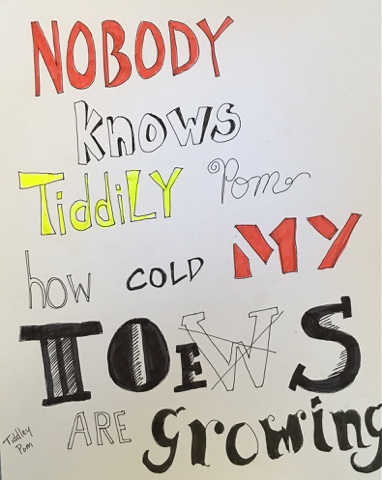 NOBODY
knows
TiddiLY Pom
how COLD MY
TOEWS
ARE growing
Tiddley
Pom